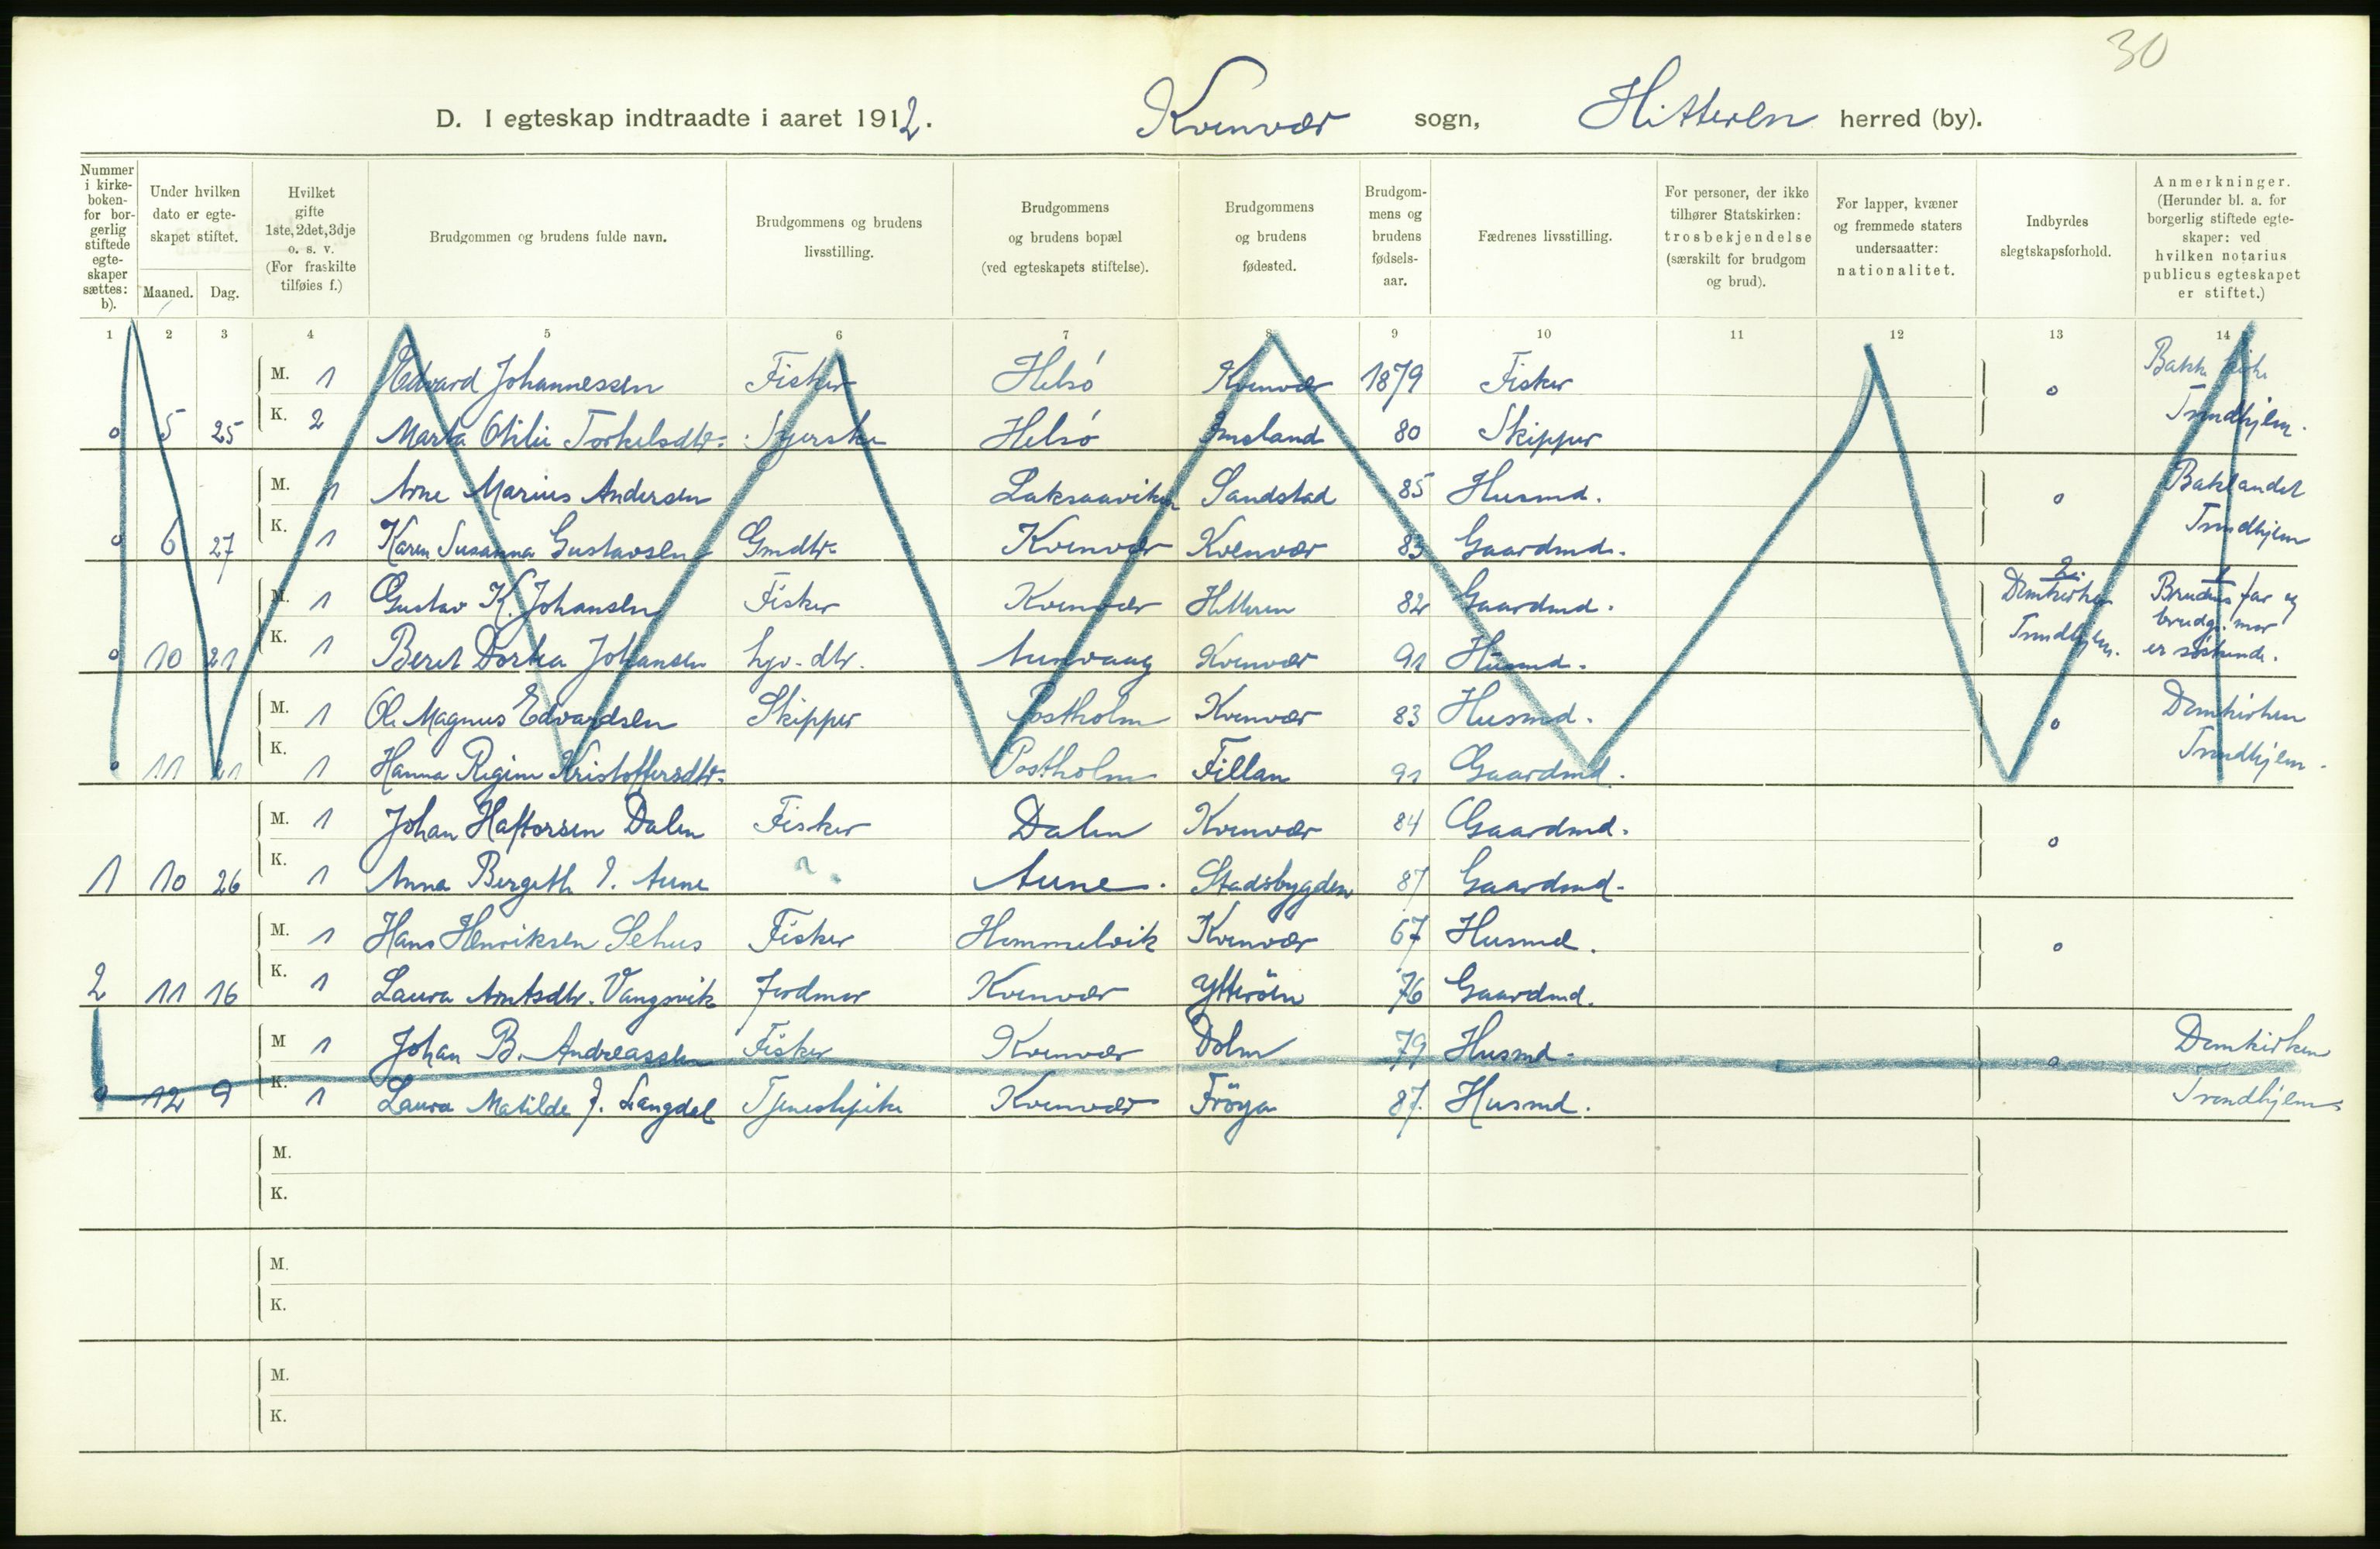 30
D. I egteskap indtraadte i aaret 1912. Kvenvær sogn, Hitteren herred (by).
Nummer i kirke-boken- for bor-gerlig stiftede egte-skaper sættes: b).
Under hvilken dato er egte-skapet stiftet.
Maaned. Dag.
Hvilket gifte 1ste, 2det, 3dje o. s. v. (For fraskilte tilføies f.)
Brudgommen og brudens fulde navn.
Brudgommens og brudens livsstilling.
Brudgommens og brudens bopæl (ved egteskapets stiftelse).
Brudgommens og brudens fødested.
Brudgom-mens og brudens fødsels-aar.
Fædrenes livsstilling.
For personer, der ikke tilhører Statskirken: trosbekjendelse (særskilt for brudgom og brud).
For lapper, kvæner og fremmede staters undersaatter: nationalitet.
Indbyrdes slegtskapsforhold.
Anmerkninger. (Herunder bl. a. for borgerlig stiftede egte-skaper: ved hvilken notarius publicus egteskapet er stiftet.)
1 2 3 4 5 6 7 8 9 10 11 12 13 14
M. 1 Edvard Johannessen Fisker Helsö Kvenvær 1879 Fisker o Bakk kirke
o 5 25 K. 2 Marta Otilie Torkelsdtr. Syerske Helsö Imsland 80 Skipper Trondhjem.
M. 1 Arne Marius Andersen Laksaaviken Sandstad 85 Husmd. o Baklandet
o 6 27 K. 1 Karen Susanna Gustavsen Gmdtr. Kvenvær Kvenvær 83 Gaardmd. Trondhjem
M. 1 Gustav K. Johansen Fisker Kvenvær Hitteren 82 Gaardmd. 2. Domkirken Brudens far og brudg. mor
o 10 21 K. 1 Beret Dortea Johansen hjv. dtr. Aunvaag Kvenvær 91 Husmd. Trondhjem. er söskende.
M. 1 Ole Magnus Edvardsen Skipper Postholm Kvenvær 83 Husmd. o Domkirken
o 11 21 K. 1 Hanna Regine Kristoffersdtr. Postholm Fillan 91 Gaardmd. Trondhjem.
M. 1 Johan Haftorsen Dalen Fisker Dalen Kvenvær 84 Gaardmd. o
1 10 26 K. 1 Anna Bergeth I. Aune ? Aune. Stadsbygden 87 Gaardmd.
M. 1 Hans Henriksen Sehus Fisker Hommelvik Kvenvær 67 Husmd. o
2 11 16 K. 1 Laura Arntsdtr. Vangsvik Jordmor Kvenvær Ytteröen 76 Gaardmd.
M 1 Johan B. Andreassen Fisker Kvenvær Dolm 79 Husmd. o Domkirken
o 12 9 K. 1 Laura Matilde J. Langdal Tjenestpike Kvenvær Fröya 87. Husmd. Trondhjem
M.
K.
M.
K.
M.
K.